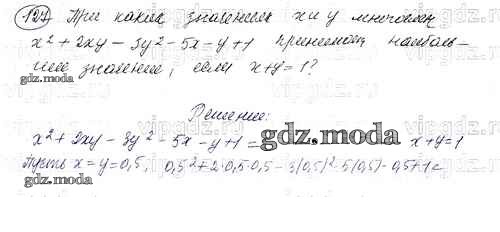 127 При каких значениях x и y многочлен
x² + 2xy - 3y² - 5x - y + 1 принимает наиболь-
шее значение, если x+y=1?
gdz.moda
Решение:
x² + 2xy - 3y² - 5x - y + 1 =
gdz.moda
x+y=1
Пусть x = y = 0,5, 0,5² + 2·0,5·0,5 - 3(0,5)² - 5(0,5) - 0,5 + 1 =
gdz.moda